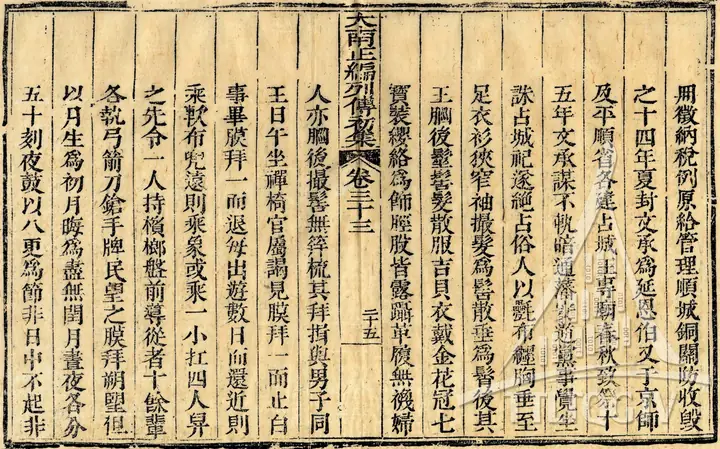 用徵納稅例原給管理順城銅關防收毀
之十四年夏封文承爲延恩伯又于京師
及平順省各建占城王專廟春秋致祭十
五年文承謀不軌暗通藩寮逆黨事覺坐
誅占城祀遂絶占俗人以氎布纒胸垂至
足衣衫狹窄袖撮髮爲髻散垂爲髾後其
王腦後鬈髻髮散服吉貝衣戴金花冠七
寶裝纓絡爲飾脛股皆露躡革履無襪婦
大南正編列傳初集 卷三十三 二十五
人亦腦後撮髻無笄梳其拜揖與男子同
王日午坐禪椅官屬謁見膜拜一而止白
事畢膜拜一而退每出遊數日而還近則
乘軟布兜遠則乘象或乘一小扛四人舁
之先令一人持檳榔盤前導從者十餘輩
各執弓箭刀鎗手牌民望之膜拜朔望但
以月生爲初月晦爲盡無閏月晝夜各分
五十刻夜鼓以八更爲節非日中不起非